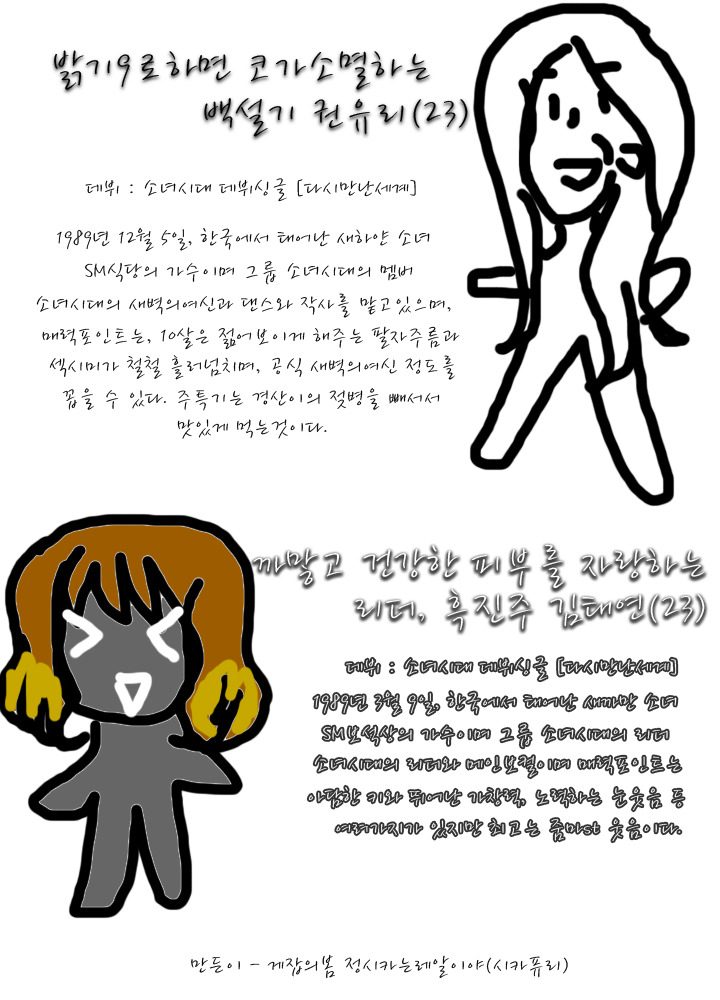 밝기9로하면 코가소멸하는
백설기 권유리(23)
데뷔 : 소녀시대 데뷔싱글 [다시만난세계]
1989년 12월 5일, 한국에서 태어난 새하얀 소녀
SM식당의 가수이며 그룹 소녀시대의 멤버
소녀시대의 새벽의여신과 댄스와 작사를 맡고있으며,
매력포인트는, 10살은 젊어보이게 해주는 팔자주름과
섹시미가 철철 흘러넘치며, 공식 새벽의여신 정도를
꼽을 수 있다. 주특기는 경산이의 젖병을 빼서서
맛있게 먹는것이다.
까맣고 건강한 피부를 자랑하는
리더, 흑진주 김태연(23)
데뷔 : 소녀시대 데뷔싱글 [다시만난세계]
1989년 3월 9일, 한국에서 태어난 새까만 소녀
SM보석상의 가수이며 그룹 소녀시대의 리더
소녀시대의 리더와 메인보컬이며 매력포인트는
아담한 키와 뛰어난 가창력, 노력하는 눈웃음 등
여러가지가 있지만 최고는 줌마st 웃음이다.
만든이 - 게잡의봄 정시카는레알이야(시카퓨리)